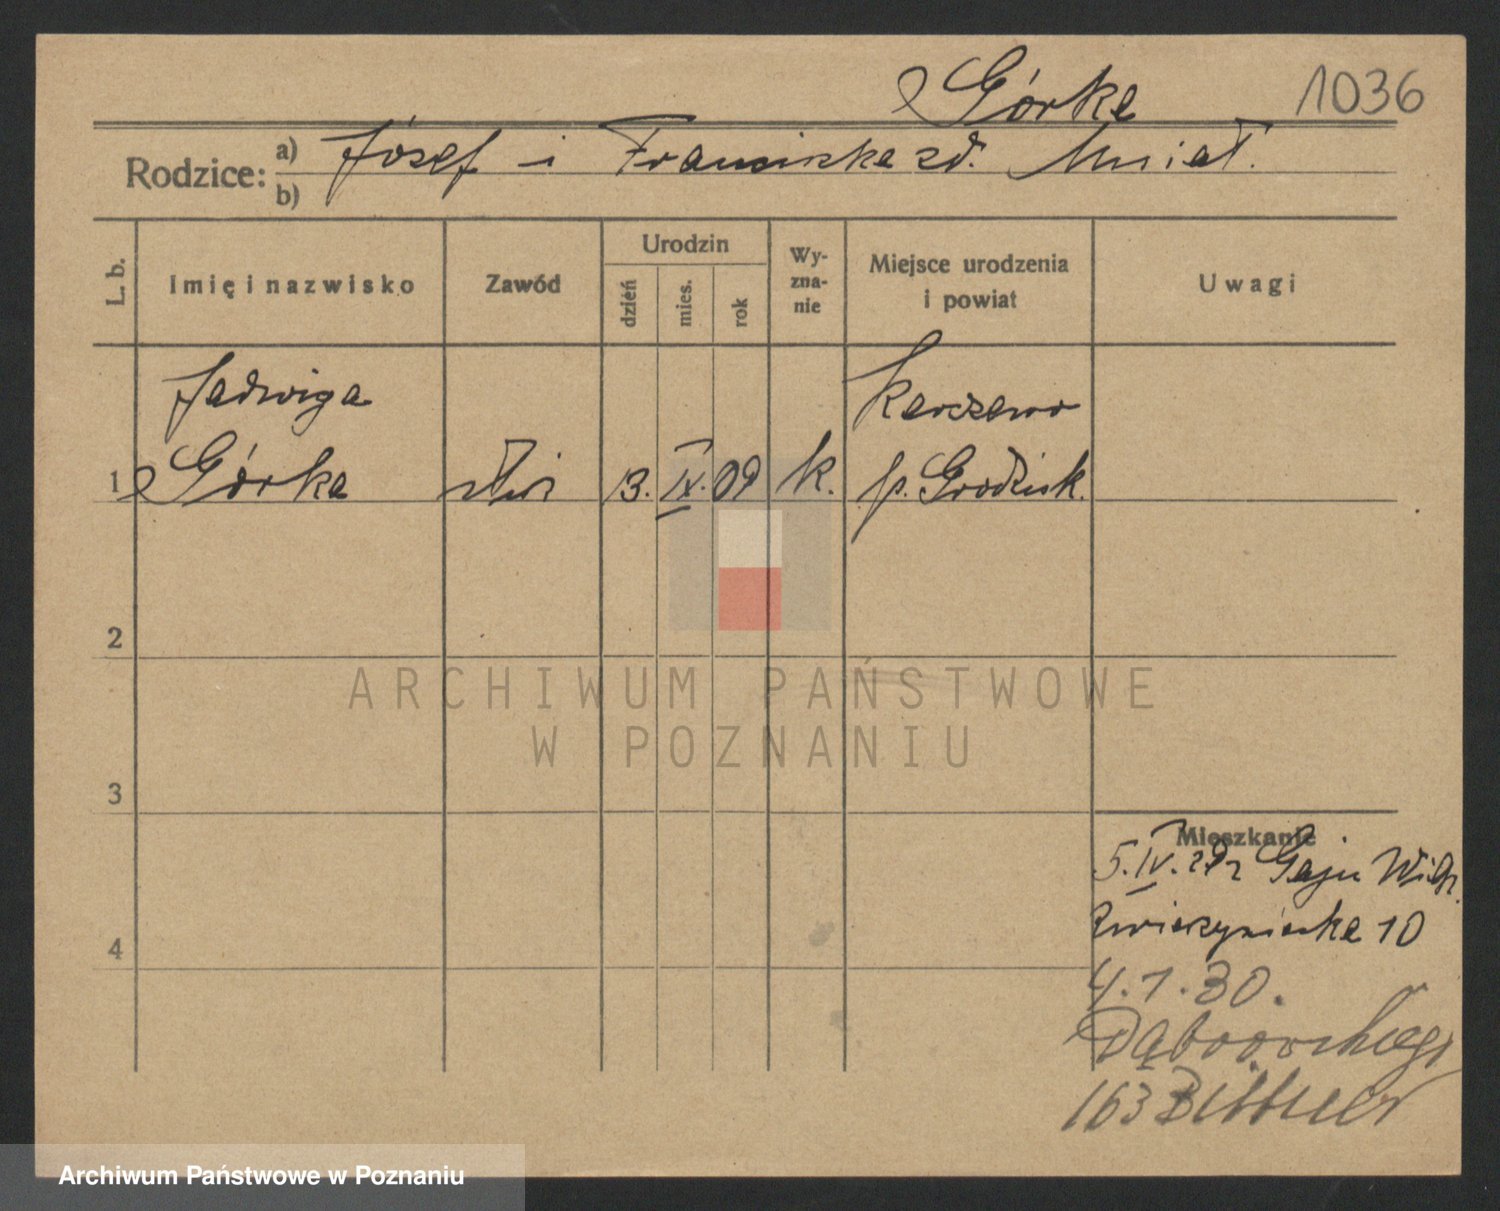 Górka
1036
Rodzice: a) b)
Józef i Franciszka zd. Musiał.
L. b.
Imię i nazwisko
Zawód
Urodzin
dzień
mies.
rok
Wy-
zna-
nie
Miejsce urodzenia
i powiat
Uwagi
Jadwiga
Karczewo
1
Górka
13. IX. 09
k.
p. Grodzisk.
2
ARCHIWUM PAŃSTWOWE
W POZNANIU
3
Mieszkanie
5. IV. 29 z Gaju Wielk.
Zwierzyniecka 10
4
4.1.30.
Dąbrowskiego
163 Bittner
Archiwum Państwowe w Poznaniu